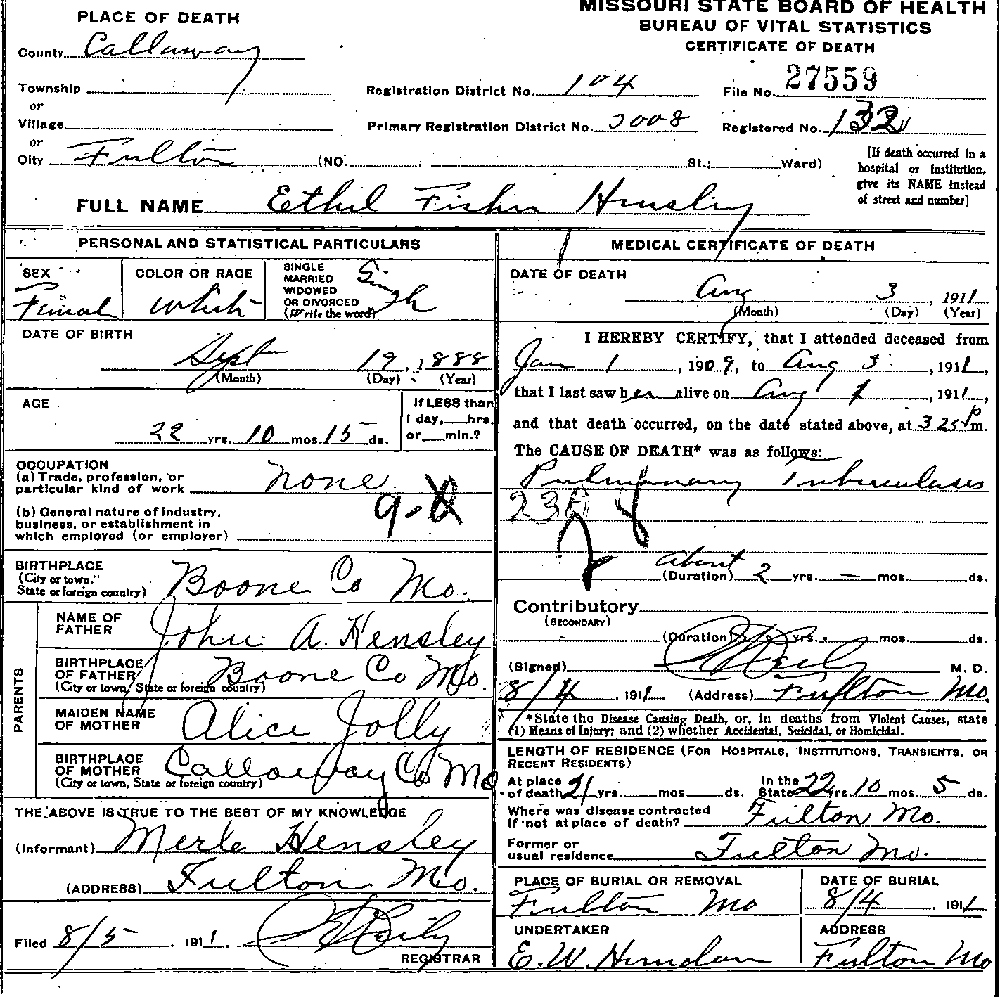 MISSOURI STATE BOARD OF HEALTH
BUREAU OF VITAL STATISTICS
CERTIFICATE OF DEATH
PLACE OF DEATH
County Callaway
Township
or
Village
or
City Fulton (NO. St.; Ward)
Registration District No. 104 File No. 27559
Primary Registration District No. 3008 Registered No. 132
[If death occurred in a
hospital or institution,
give its NAME instead
of street and number]
FULL NAME Ethel Fisher Hensley
PERSONAL AND STATISTICAL PARTICULARS
SEX
Female
COLOR OR RACE
White
SINGLE
MARRIED
WIDOWED
OR DIVORCED
(Write the word)
Single
DATE OF BIRTH
Sept 19, 1888
(Month) (Day) (Year)
AGE
22 yrs. 10 mos. 15 ds.
If LESS than
1 day, hrs.
or min.?
OCCUPATION
(a) Trade, profession, or
particular kind of work none
(b) General nature of industry,
business, or establishment in
which employed (or employer)
BIRTHPLACE
(City or town,
State or foreign country) Boone Co Mo.
PARENTS
NAME OF
FATHER John A. Hensley
BIRTHPLACE
OF FATHER
(City or town, State or foreign country) Boone Co Mo.
MAIDEN NAME
OF MOTHER Alice Jolly
BIRTHPLACE
OF MOTHER
(City or town, State or foreign country) Calloway Co Mo
THE ABOVE IS TRUE TO THE BEST OF MY KNOWLEDGE
(Informant) Merle Hensley
(ADDRESS) Fulton Mo.
Filed 8/5 1911.
REGISTRAR
MEDICAL CERTIFICATE OF DEATH
DATE OF DEATH
Aug 3, 1911
(Month) (Day) (Year)
I HEREBY CERTIFY, that I attended deceased from
Jan 1, 1909, to Aug 3, 1911,
that I last saw her alive on Aug 1, 1911,
and that death occurred, on the date stated above, at 3 25 P m.
The CAUSE OF DEATH* was as follows:
Pulmonary Tuberculosis
about
(Duration) 2 yrs. – mos. ds.
Contributory
(SECONDARY)
(Duration) yrs. mos. ds.
(Signed) M. D.
8/4, 1911 (Address) Fulton Mo
*State the Disease Causing Death, or, in deaths from Violent Causes, state
(1) Means of Injury; and (2) whether Accidental, Suicidal, or Homicidal.
LENGTH OF RESIDENCE (FOR HOSPITALS, INSTITUTIONS, TRANSIENTS, OR
RECENT RESIDENTS)
At place
of death 21 yrs. mos. ds.
In the
State 22 yrs. 10 mos. 5 ds.
Where was disease contracted
If not at place of death? Fulton Mo.
Former or
usual residence Fulton Mo.
PLACE OF BURIAL OR REMOVAL
Fulton Mo
DATE OF BURIAL
8/4, 1911
UNDERTAKER
E. W.
ADDRESS
Fulton Mo